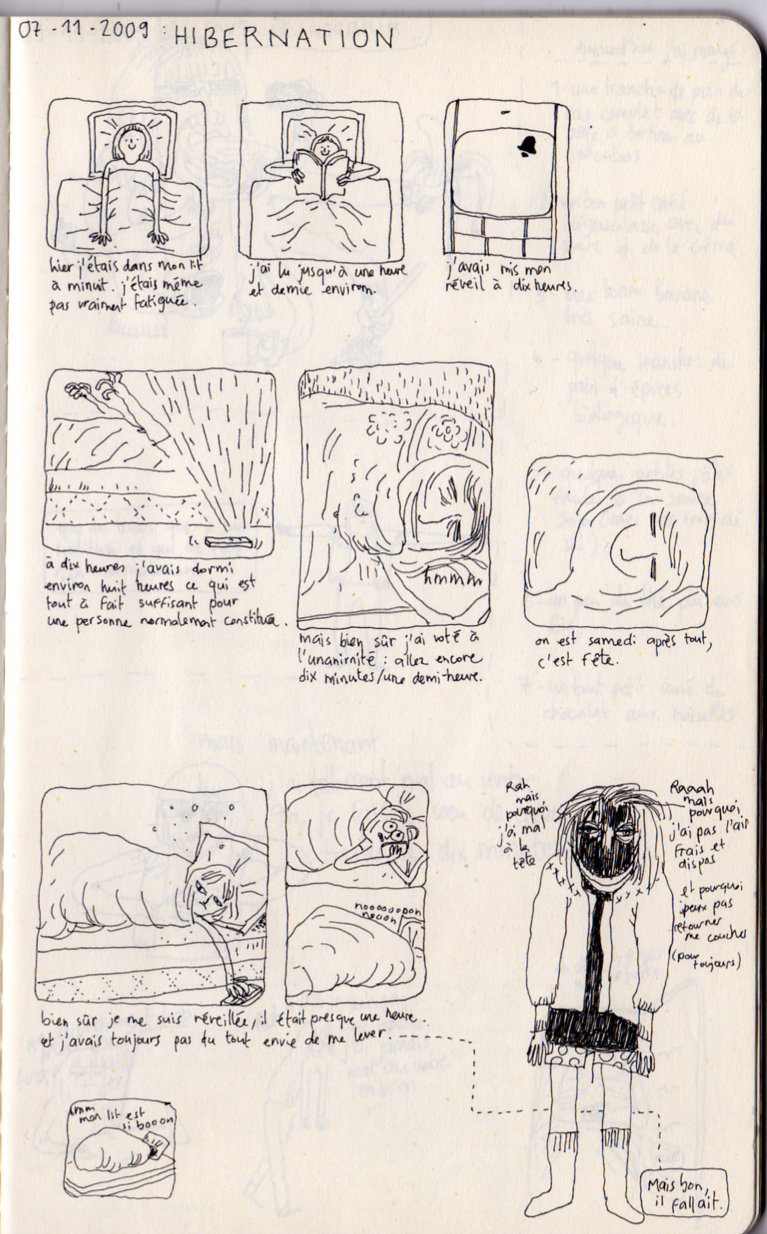 07-11-2009 : HIBERNATION
hier j'étais dans mon lit
à minuit. j'étais même
pas vraiment fatiguée.
j'ai lu jusqu'à une heure
et demie environ.
j'avais mis mon
réveil à dix heures.
à dix heures j'avais dormi
environ huit heures ce qui est
tout à fait suffisant pour
une personne normalement constituée.
hmmm
mais bien sûr j'ai voté à
l'unanimité : allez encore
dix minutes/une demi-heure.
on est samedi après tout,
c'est fête.
noooooooon
nooon
bien sûr je me suis réveillée, il était presque une heure.
et j'avais toujours pas du tout envie de me lever
Rah
mais
pourquoi
j'ai mal
à la
tête
Raaah
mais
pourquoi
j'ai pas l'air
frais et
dispos
et pourquoi
peux pas
retourner
me coucher
(pour
toujours)
mon lit est
si booon
Mais bon,
il fallait.